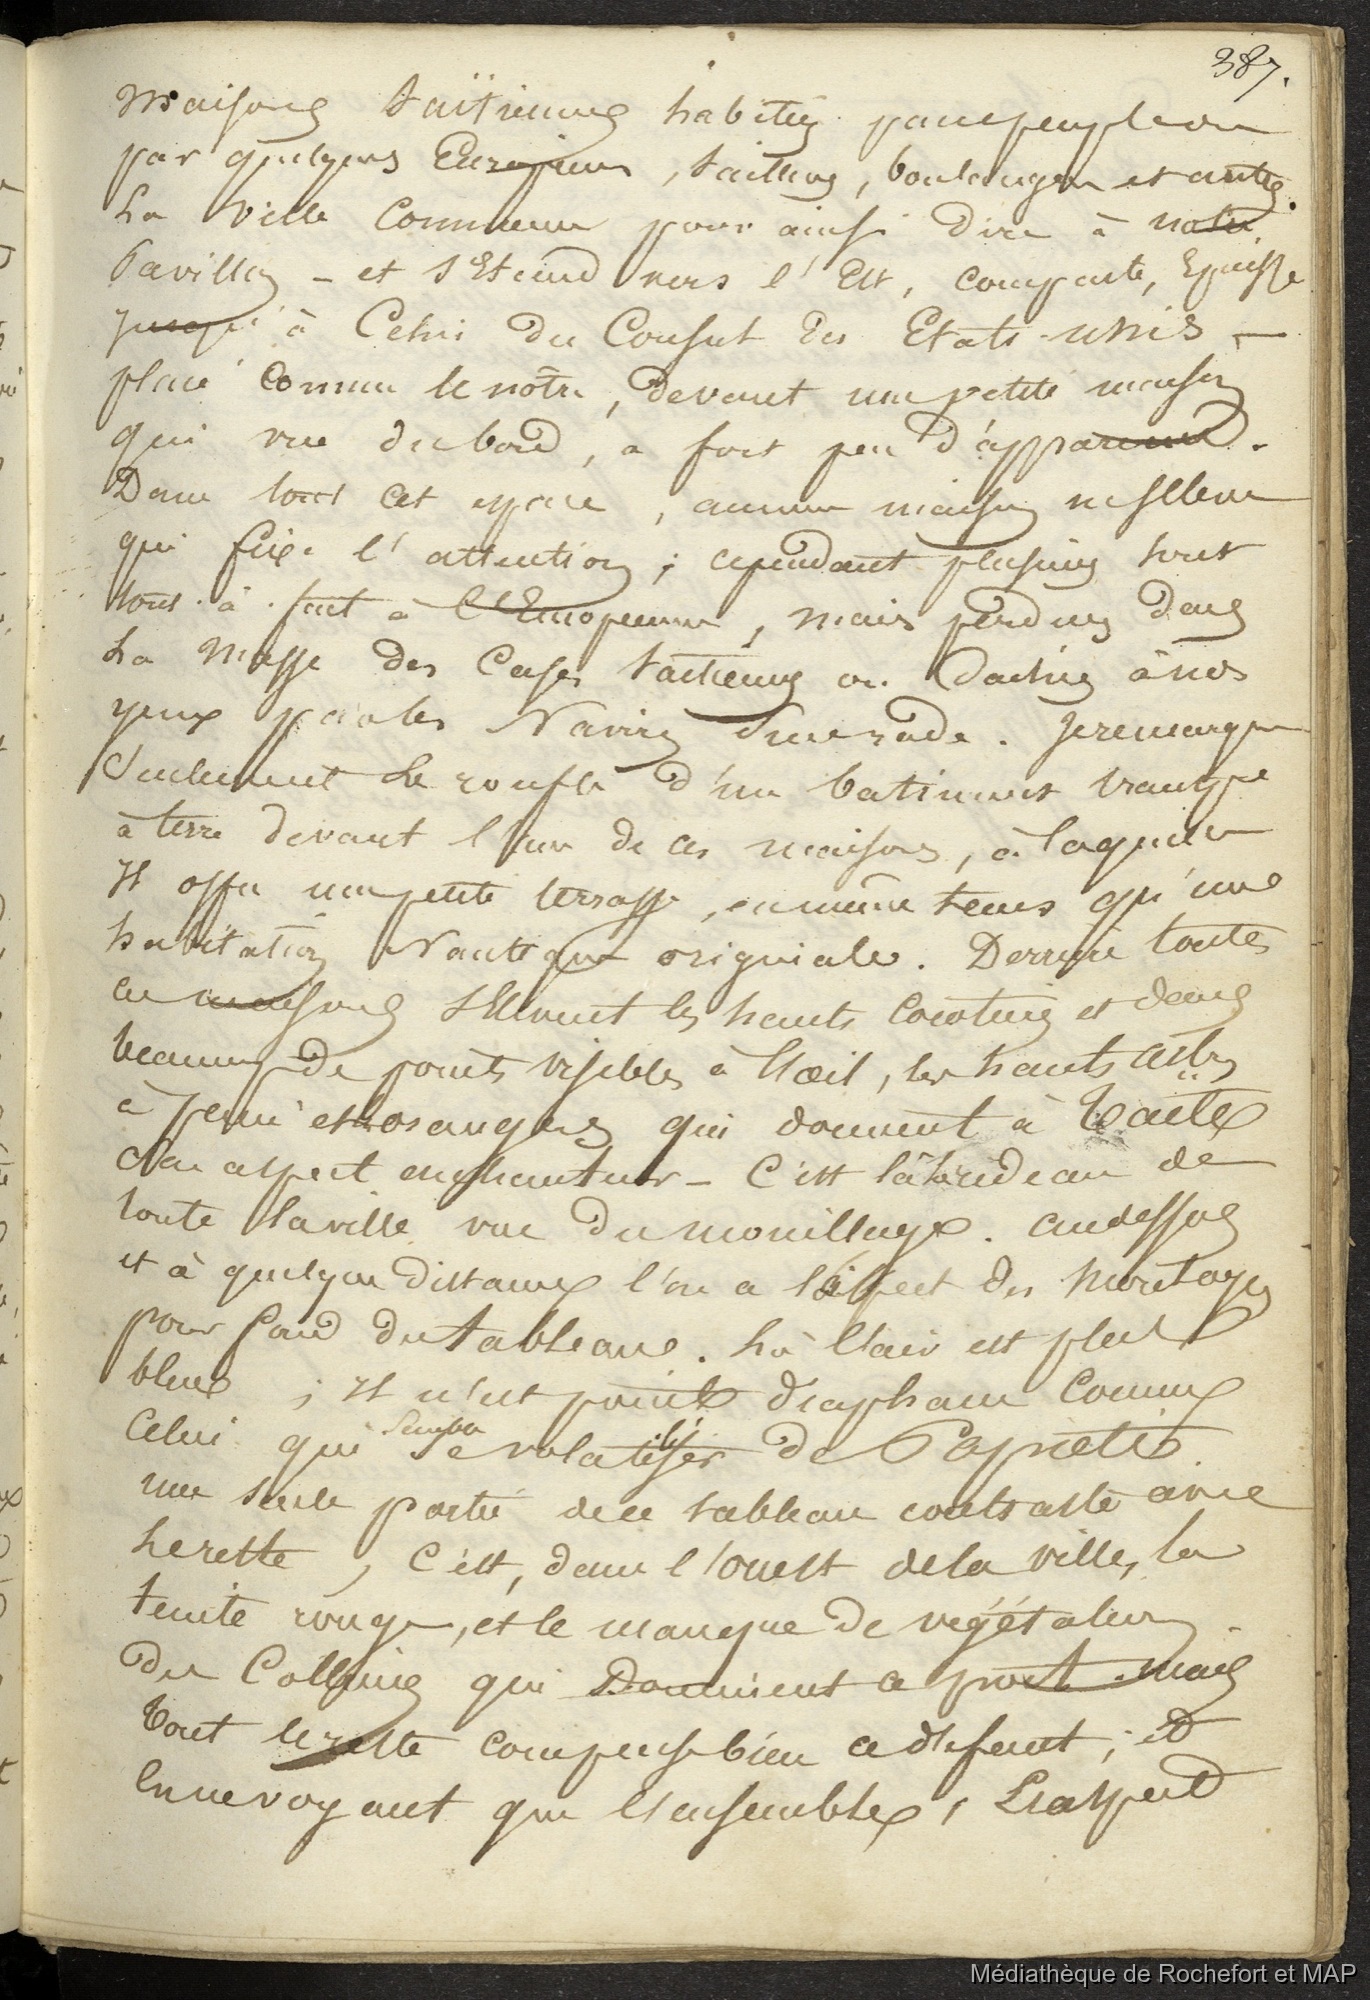 387.
Maisons taïtiennes habitées par
par quelques Européens, tailleurs, boulangers et autres.
La ville commence pour ainsi dire à notre
Pavillon - et s'étend vers l'Est, compacte, Epaisse
jusqu'à Celui du Consul des Etats-unis -
placé comme le nôtre, devant une petite maison
qui vue du bord, a fort peu d'apparence.
Dans tout cet espace, aucune maison ne s'élève
qui fixe l'attention; cependant plusieurs sont
tout-à-fait à l'Européenne, mais perdues dans
La Masse des Cases taïtiennes ou Cachées à nos
yeux par les Navires d'une rade. Je remarque
Seulement le roufle d'un batiment
à terre devant l'une de ces maisons, à laquelle
Il offre une petite terrasse, en même tems qu'une
habitation Nautique originale. Derrière toutes
ces maisons s'Elèvent les hauts Cocotiers et dans
beaucoup de points visibles à l'oeil, les hauts arbres
à pain et orangers qui donnent à Taïti
Son aspect enchanteur - C'est là le rideau de
toute la ville vue du mouillage. au dessus
et à quelque distance l'on a l'aspect des Montagnes
pour fond du tableau. Là l'air est plus
bleu; Il n'est point diaphane comme
Celui qui Semble se volatiliser de Papiéti.
une seule partie de ce tableau contraste avec
le reste, C'est, dans l'ouest de la ville, la
teinte rouge, et le manque de végétation
des Collines qui Dominent ce port. Mais
Tout le reste compense bien ce défaut; et
En ne voyant que l'ensemble, L'aspect
Médiathèque de Rochefort et MAP